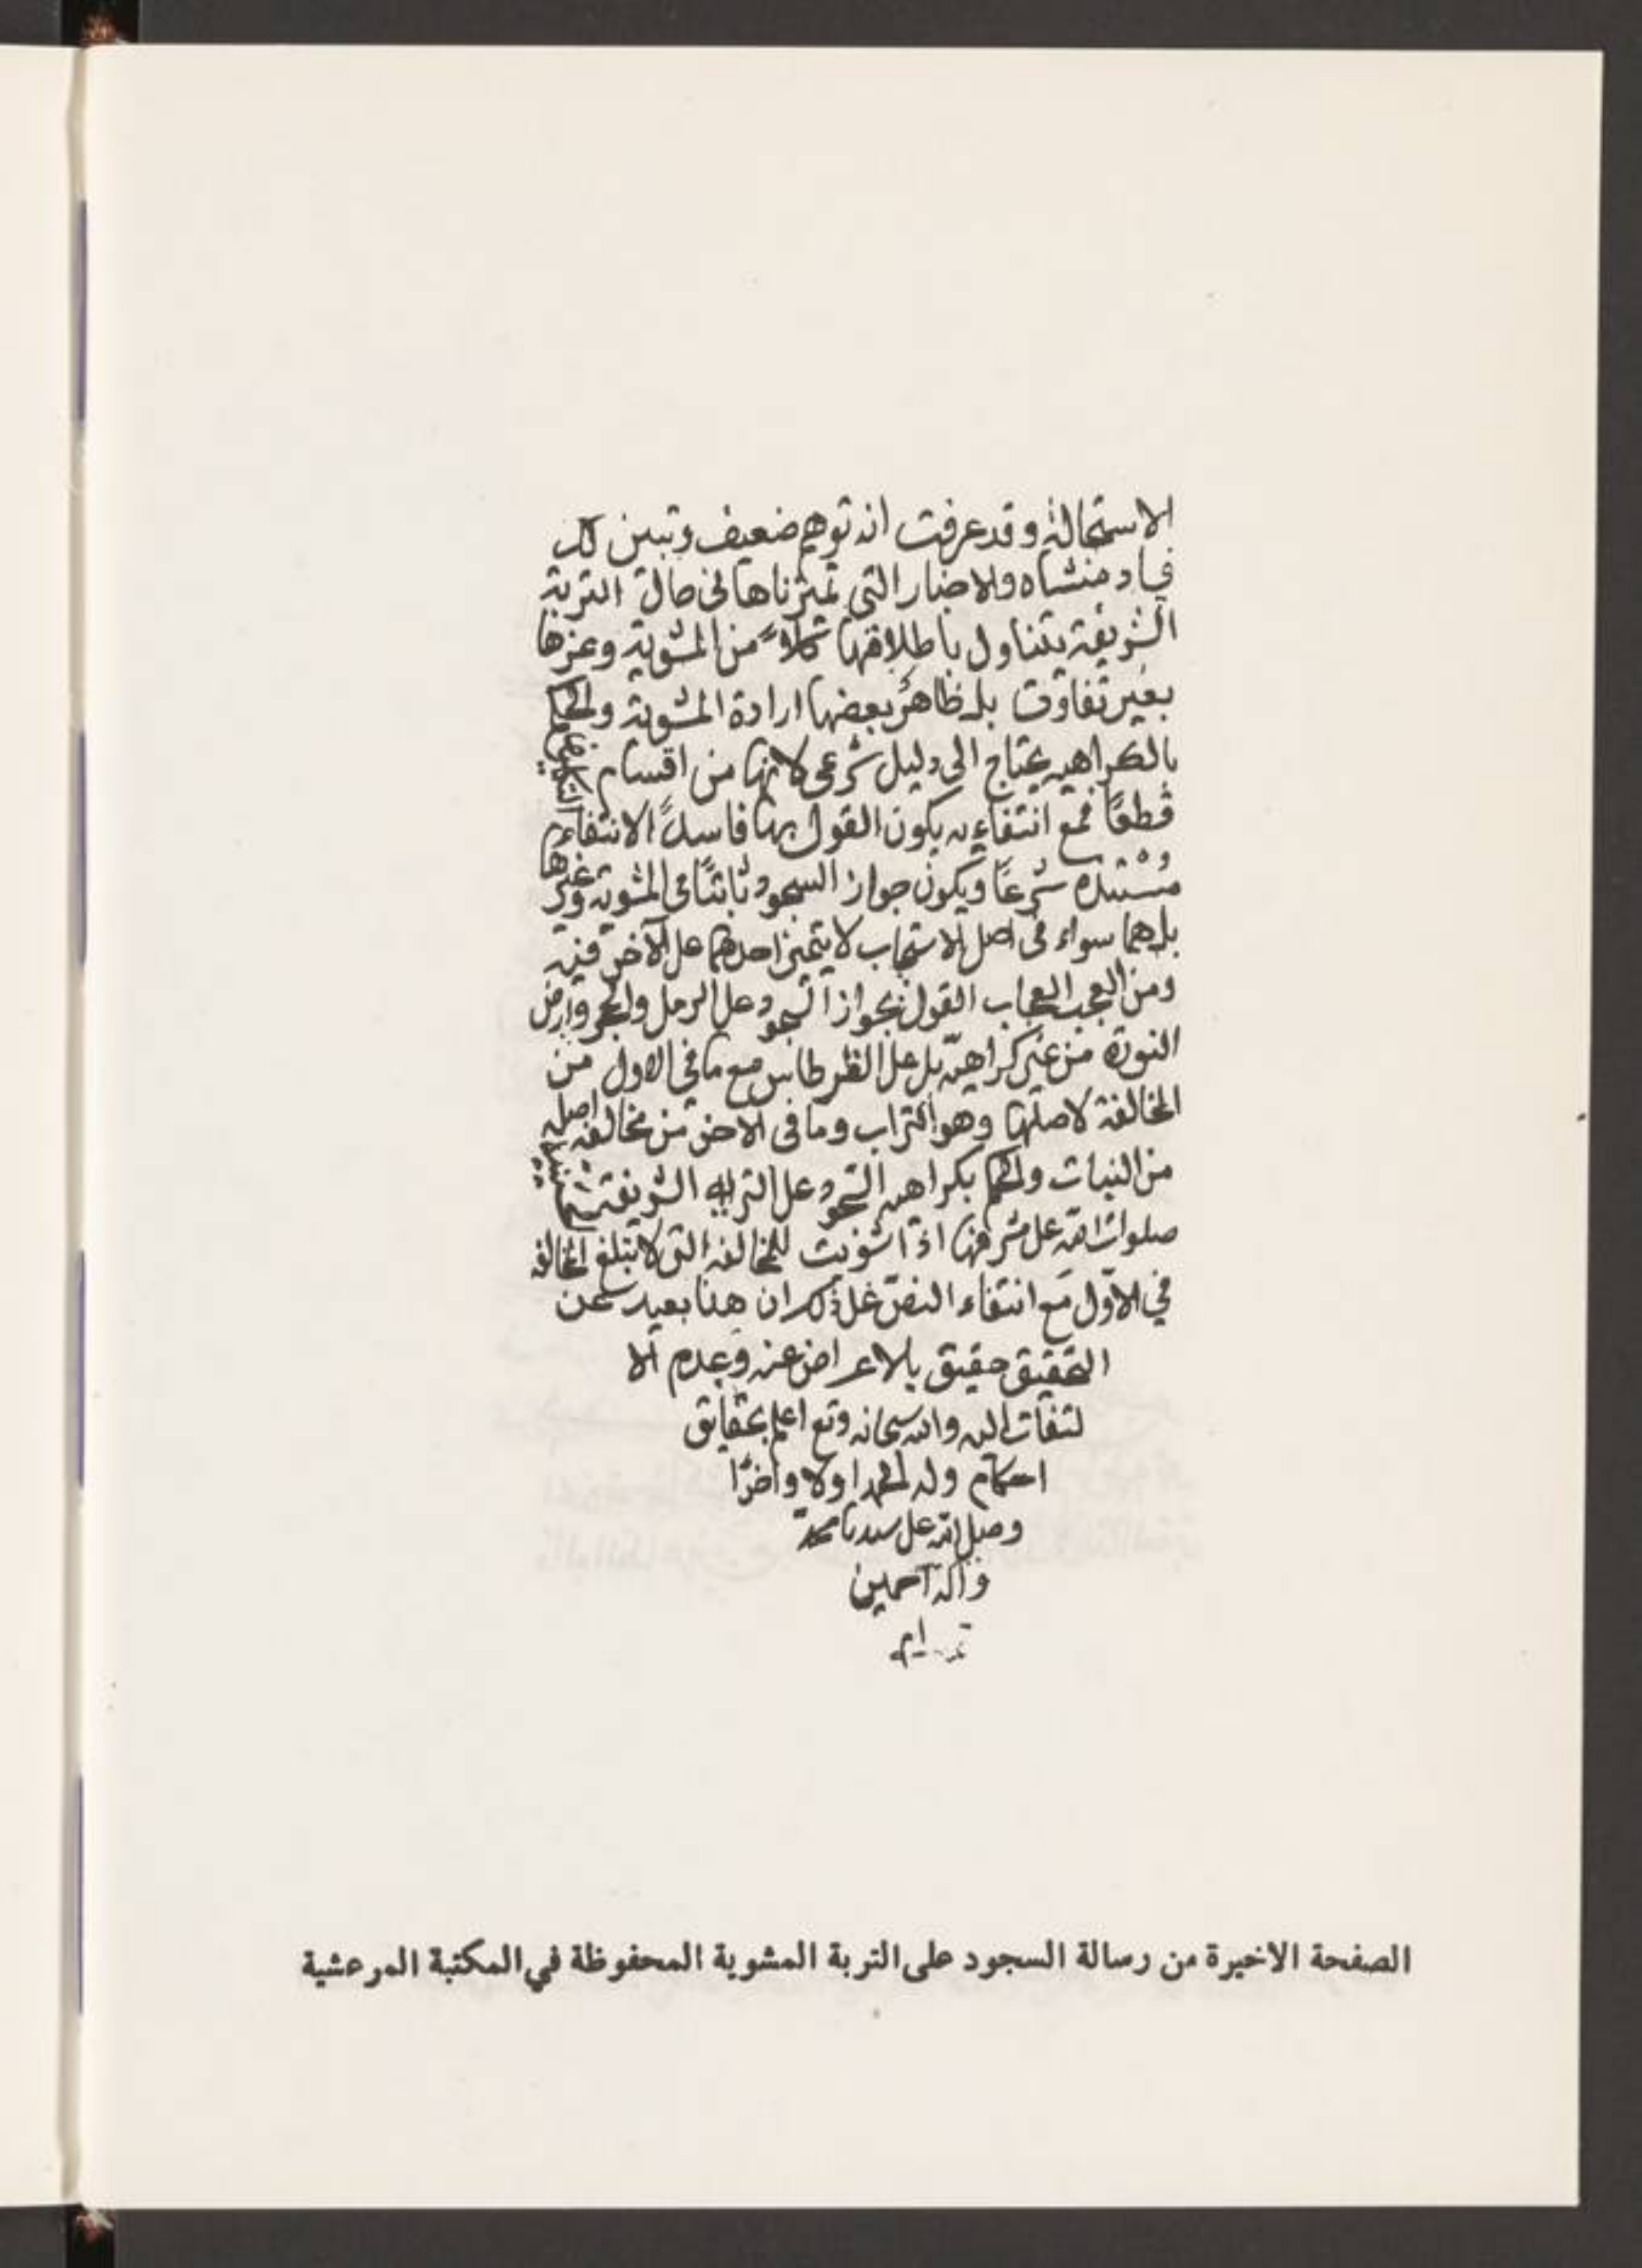 الاستحالة وقد عرفت انه توهم ضعيف وتبين لك
فساد منشاه والاخبار التي تميزناها في حال التربة
الشريفة يتناول باطلاقها كلاً من المشوية وغيرها
بغير تفاوت بل ظاهر بعضها ارادة المشوية والحكم
بالكراهية يحتاج الى دليل شرعى لانها من اقسام
قطعًا فمع انتفاءه يكون القول بها فاسدًا لانتفاء
مستنده شرعًا ويكون جواز السجود ثابتًا في المشوية وغيرها
بل هما سواء في اصل الاستحباب لا يتميز احدهما على الآخر فيه
ومن العجب العجاب القول بجواز السجود على الرمل والحجر وارض
النورة من غير كراهية بل على القرطاس مع ما في الاول من
المخالفة لاصلها وهو التراب وما في الاخر من مخالفة اصله
من النبات والحكم بكراهية السجود على التربة الشريفة
صلوات الله على مشرفها اذا شويت للمخالفة التى لا تبلغ المخالفة
في الاوّل مع انتفاء النصّ على ذلك ان هذا بعيد عن
التحقيق حقيق بالاعراض عنه وعدم الا
لتفات اليه والله سبحانه وتع اعلم بحقايق
احكامه وله الحمد اولا واخرًا
وصلى الله على سيدنا محمد
وآله آمين
الصفحة الاخيرة من رسالة السجود على التربة المشوية المحفوظة في المكتبة المرعشية